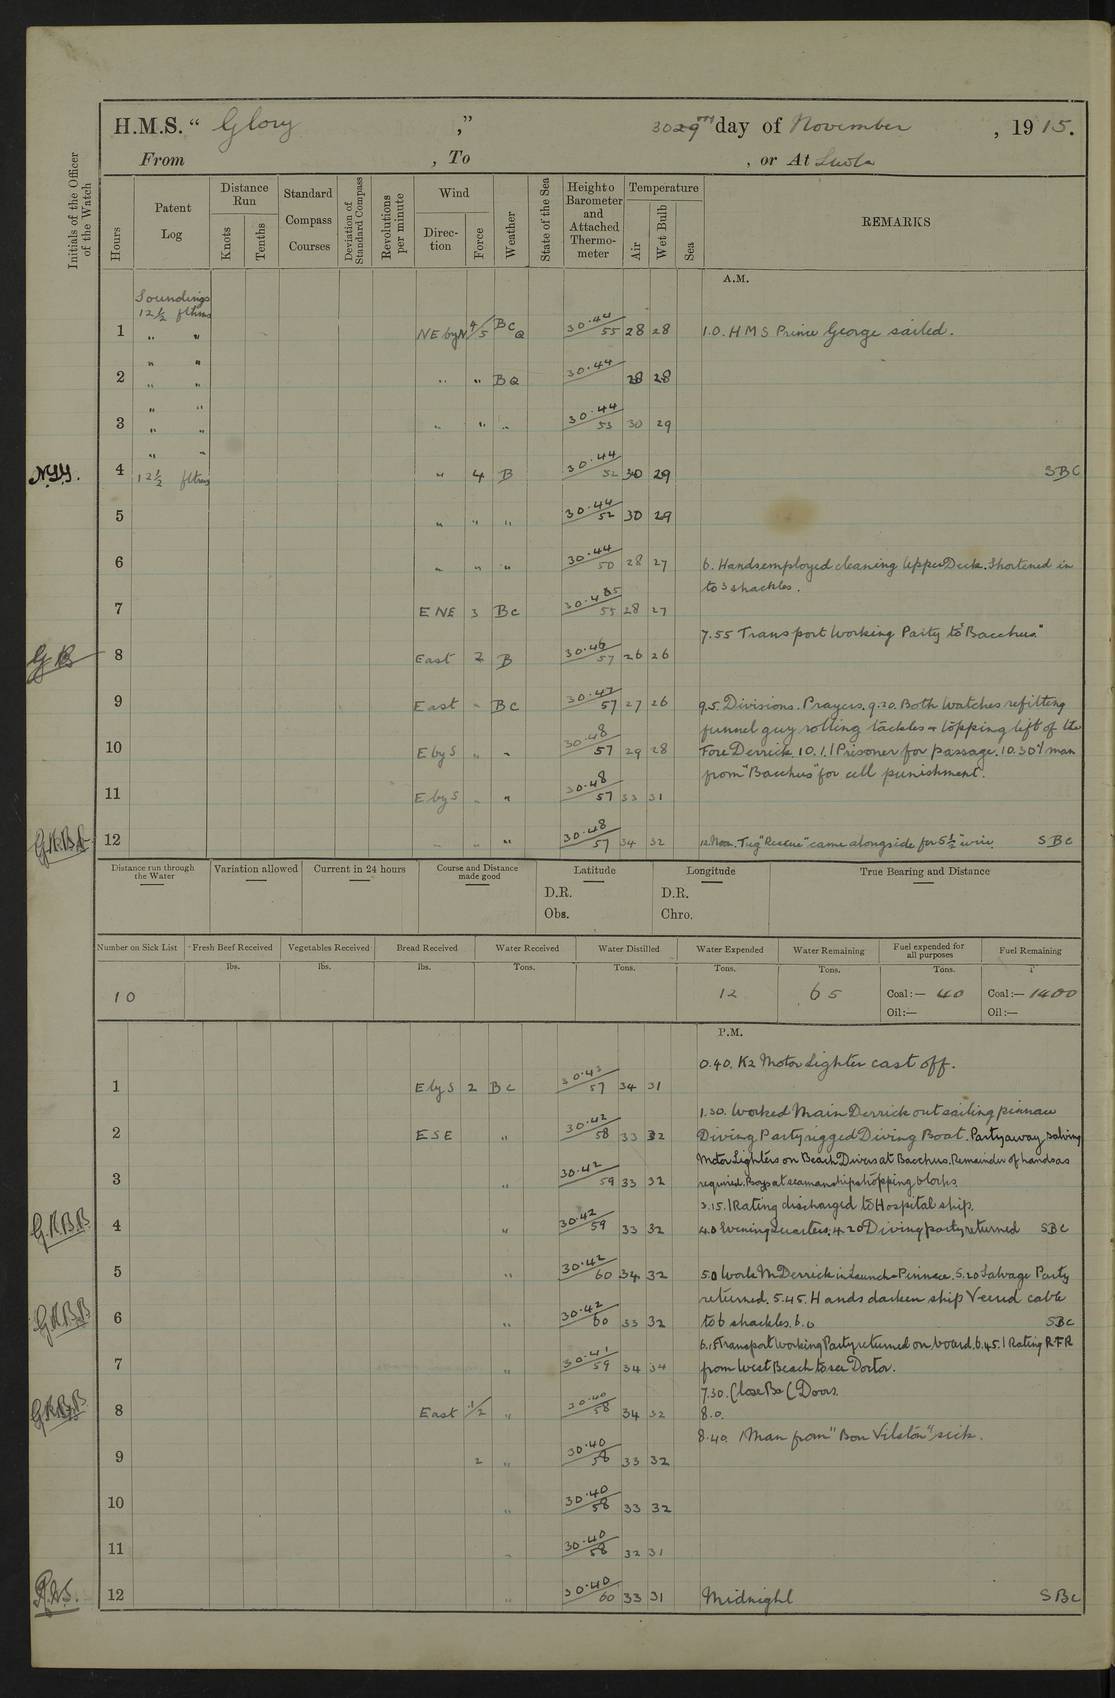 H.M.S. " Glory ," 30 29th day of November , 1915.
From , To , or At Suvla
Initials of the Officer of the Watch
Hours
Patent Log
Distance Run
Knots
Tenths
Standard Compass Courses
Deviation of Standard Compass
Revolutions per minute
Wind
Direction
Force
Weather
State of the Sea
Height o Barometer and Attached Thermometer
Temperature
Air
Wet Bulb
Sea
REMARKS
A.M.
Soundings
12½ fthms
1 " " NE by N 4/5 BC Q 30.44/55 28 28 1.0. HMS Prince George sailed.
" "
2 " " " " BQ 30.44 28 28
" "
3 " " " " " 30.44/53 30 29
" "
4 12½ fthms " 4 B 30.44/52 30 29 SBC
5 " " " 30.44/52 30 29
6 " " " 30.44/50 28 27 6. Hands employed cleaning Upper Deck. Shortened in
to 3 shackles.
7 ENE 3 BC 30.485/55 28 27
7.55 Transport Working Party to "Bacchus"
G B
8 East 2 B 30.46/57 26 26
9 East " BC 30.47/57 27 26 9.5. Divisions. Prayers. 9.20. Both Watches refitting
funnel guy rolling tackles & topping lift of the
10 E by S " " 30.48/57 29 28 Fore Derrick. 10.1. 1 Prisoner for passage. 10.30 1 man
from "Bacchus" for cell punishment.
11 E by S " " 30.48/57 33 31
G.A.B.B.
12 " " " 30.48/57 34 32 12. Noon. Tug "Rescue" came alongside for 5½" wire. SBC
Distance run through the Water
Variation allowed
Current in 24 hours
Course and Distance made good
Latitude
D.R.
Obs.
Longitude
D.R.
Chro.
True Bearing and Distance
Number on Sick List Fresh Beef Received Vegetables Received Bread Received Water Received Water Distilled Water Expended Water Remaining Fuel expended for all purposes Fuel Remaining
lbs. lbs. lbs. Tons. Tons. Tons. Tons. Tons. T
10 12 65 Coal:— 40 Coal:— 1400
Oil:— Oil:—
P.M.
0.40. K2 Motor Lighter cast off.
1 E by S 2 BC 30.43/57 34 31
1.30. Worked Main Derrick out sailing pinnace
2 ESE " 30.42/58 33 32 Diving Party rigged Diving Boat. Party away salving
Motor Lighters on Beach Divers at Bacchus. Remainder of hands as
3 " 30.42/59 33 32 required. Boys at seamanship stropping blocks
3.15. 1 Rating discharged to Hospital ship.
G.A.B.B.
4 " 30.42/59 33 32 4.0 Evening Quarters. 4.20 Diving party returned SBC
5 " 30.42/60 34 32 5.0 Work M Derrick in Launch & Pinnace. 5.20 Salvage Party
returned. 5.45. Hands darken ship Veered cable
G.A.B.B.
6 " 30.42/60 33 32 to 6 shackles. 6.0 SBC
6.15 Transport Working Party returned on board. 6.45. 1 Rating RFR
7 " 30.41/59 34 34 from West Beach to see Doctor.
7.30. Close B & C Doors.
G.A.B.B.
8 East 1/2 " 30.40/58 34 32 8.0.
8.40. 1 Man from "Bon Vilston" sick.
9 2 " 30.40/58 33 32
10 " 30.40/58 33 32
11 " 30.40/58 32 31
12 " 30.40/60 33 31 Midnight SBC